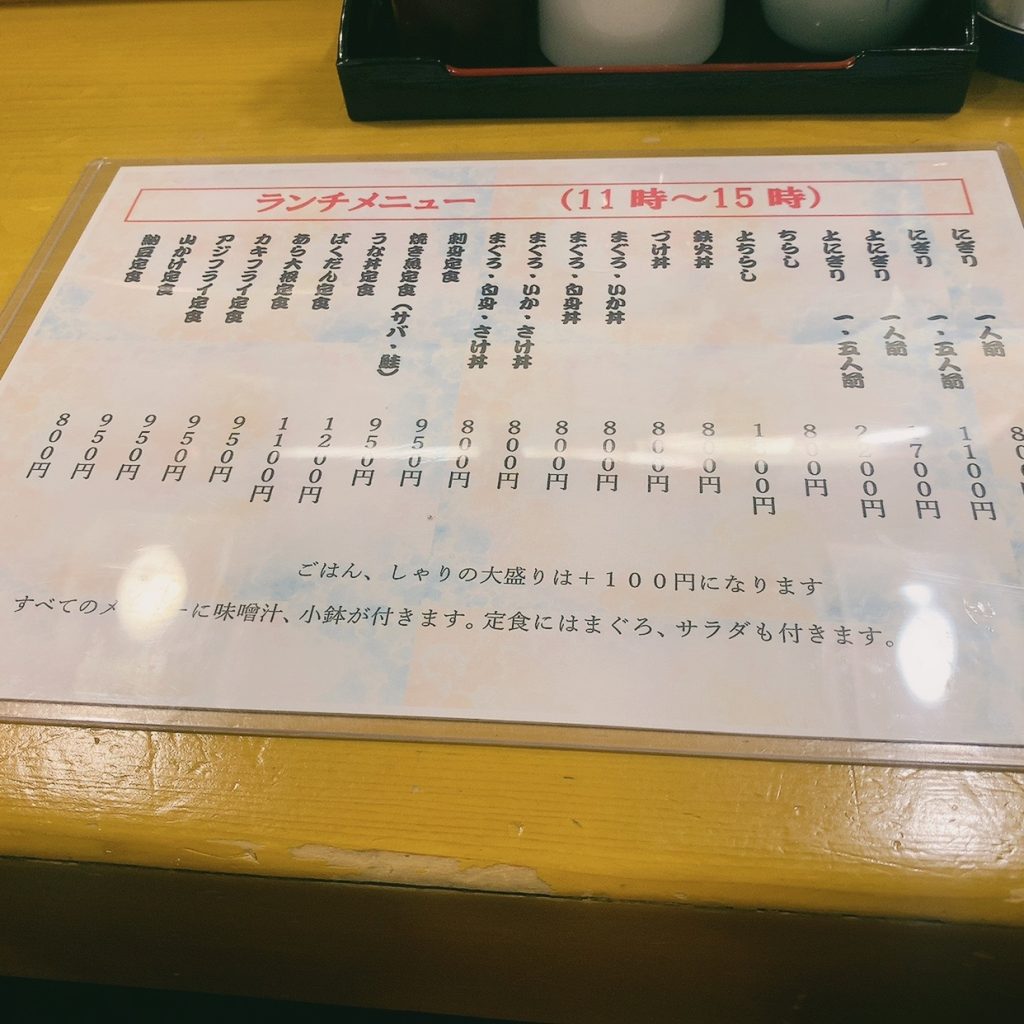 ランチメニュー (11時～15時)
にぎり 一人前
にぎり 一・五人前 1100円
とにぎり 一人前 700円
とにぎり 一・五人前
ちらし 800円
とちらし
鉄火丼 800円
づけ丼 800円
まぐろ・いか丼 800円
まぐろ・白身丼 800円
まぐろ・いか・さけ丼 800円
まぐろ・白身・さけ丼 800円
刺身定食 950円
焼き魚定食(サバ・鮭) 950円
うな丼定食 1200円
ばくだん定食 1100円
あら大根定食 950円
カキフライ定食 950円
アジフライ定食 950円
山かけ定食 950円
納豆定食 800円
ごはん、しゃりの大盛りは＋１００円になります
すべてのメーに味噌汁、小鉢が付きます。定食にはまぐろ、サラダも付きます。